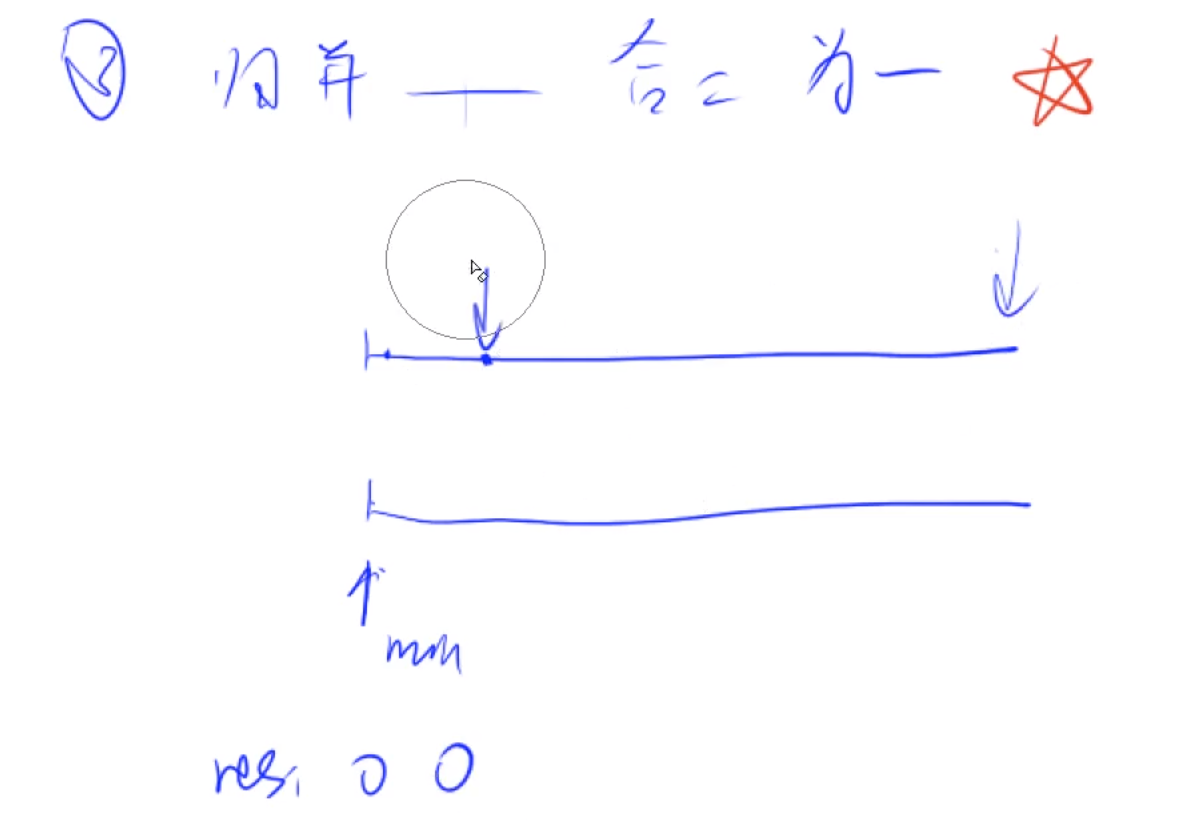 ③ 归并 — 合二为一 ☆
min
res: 0 0